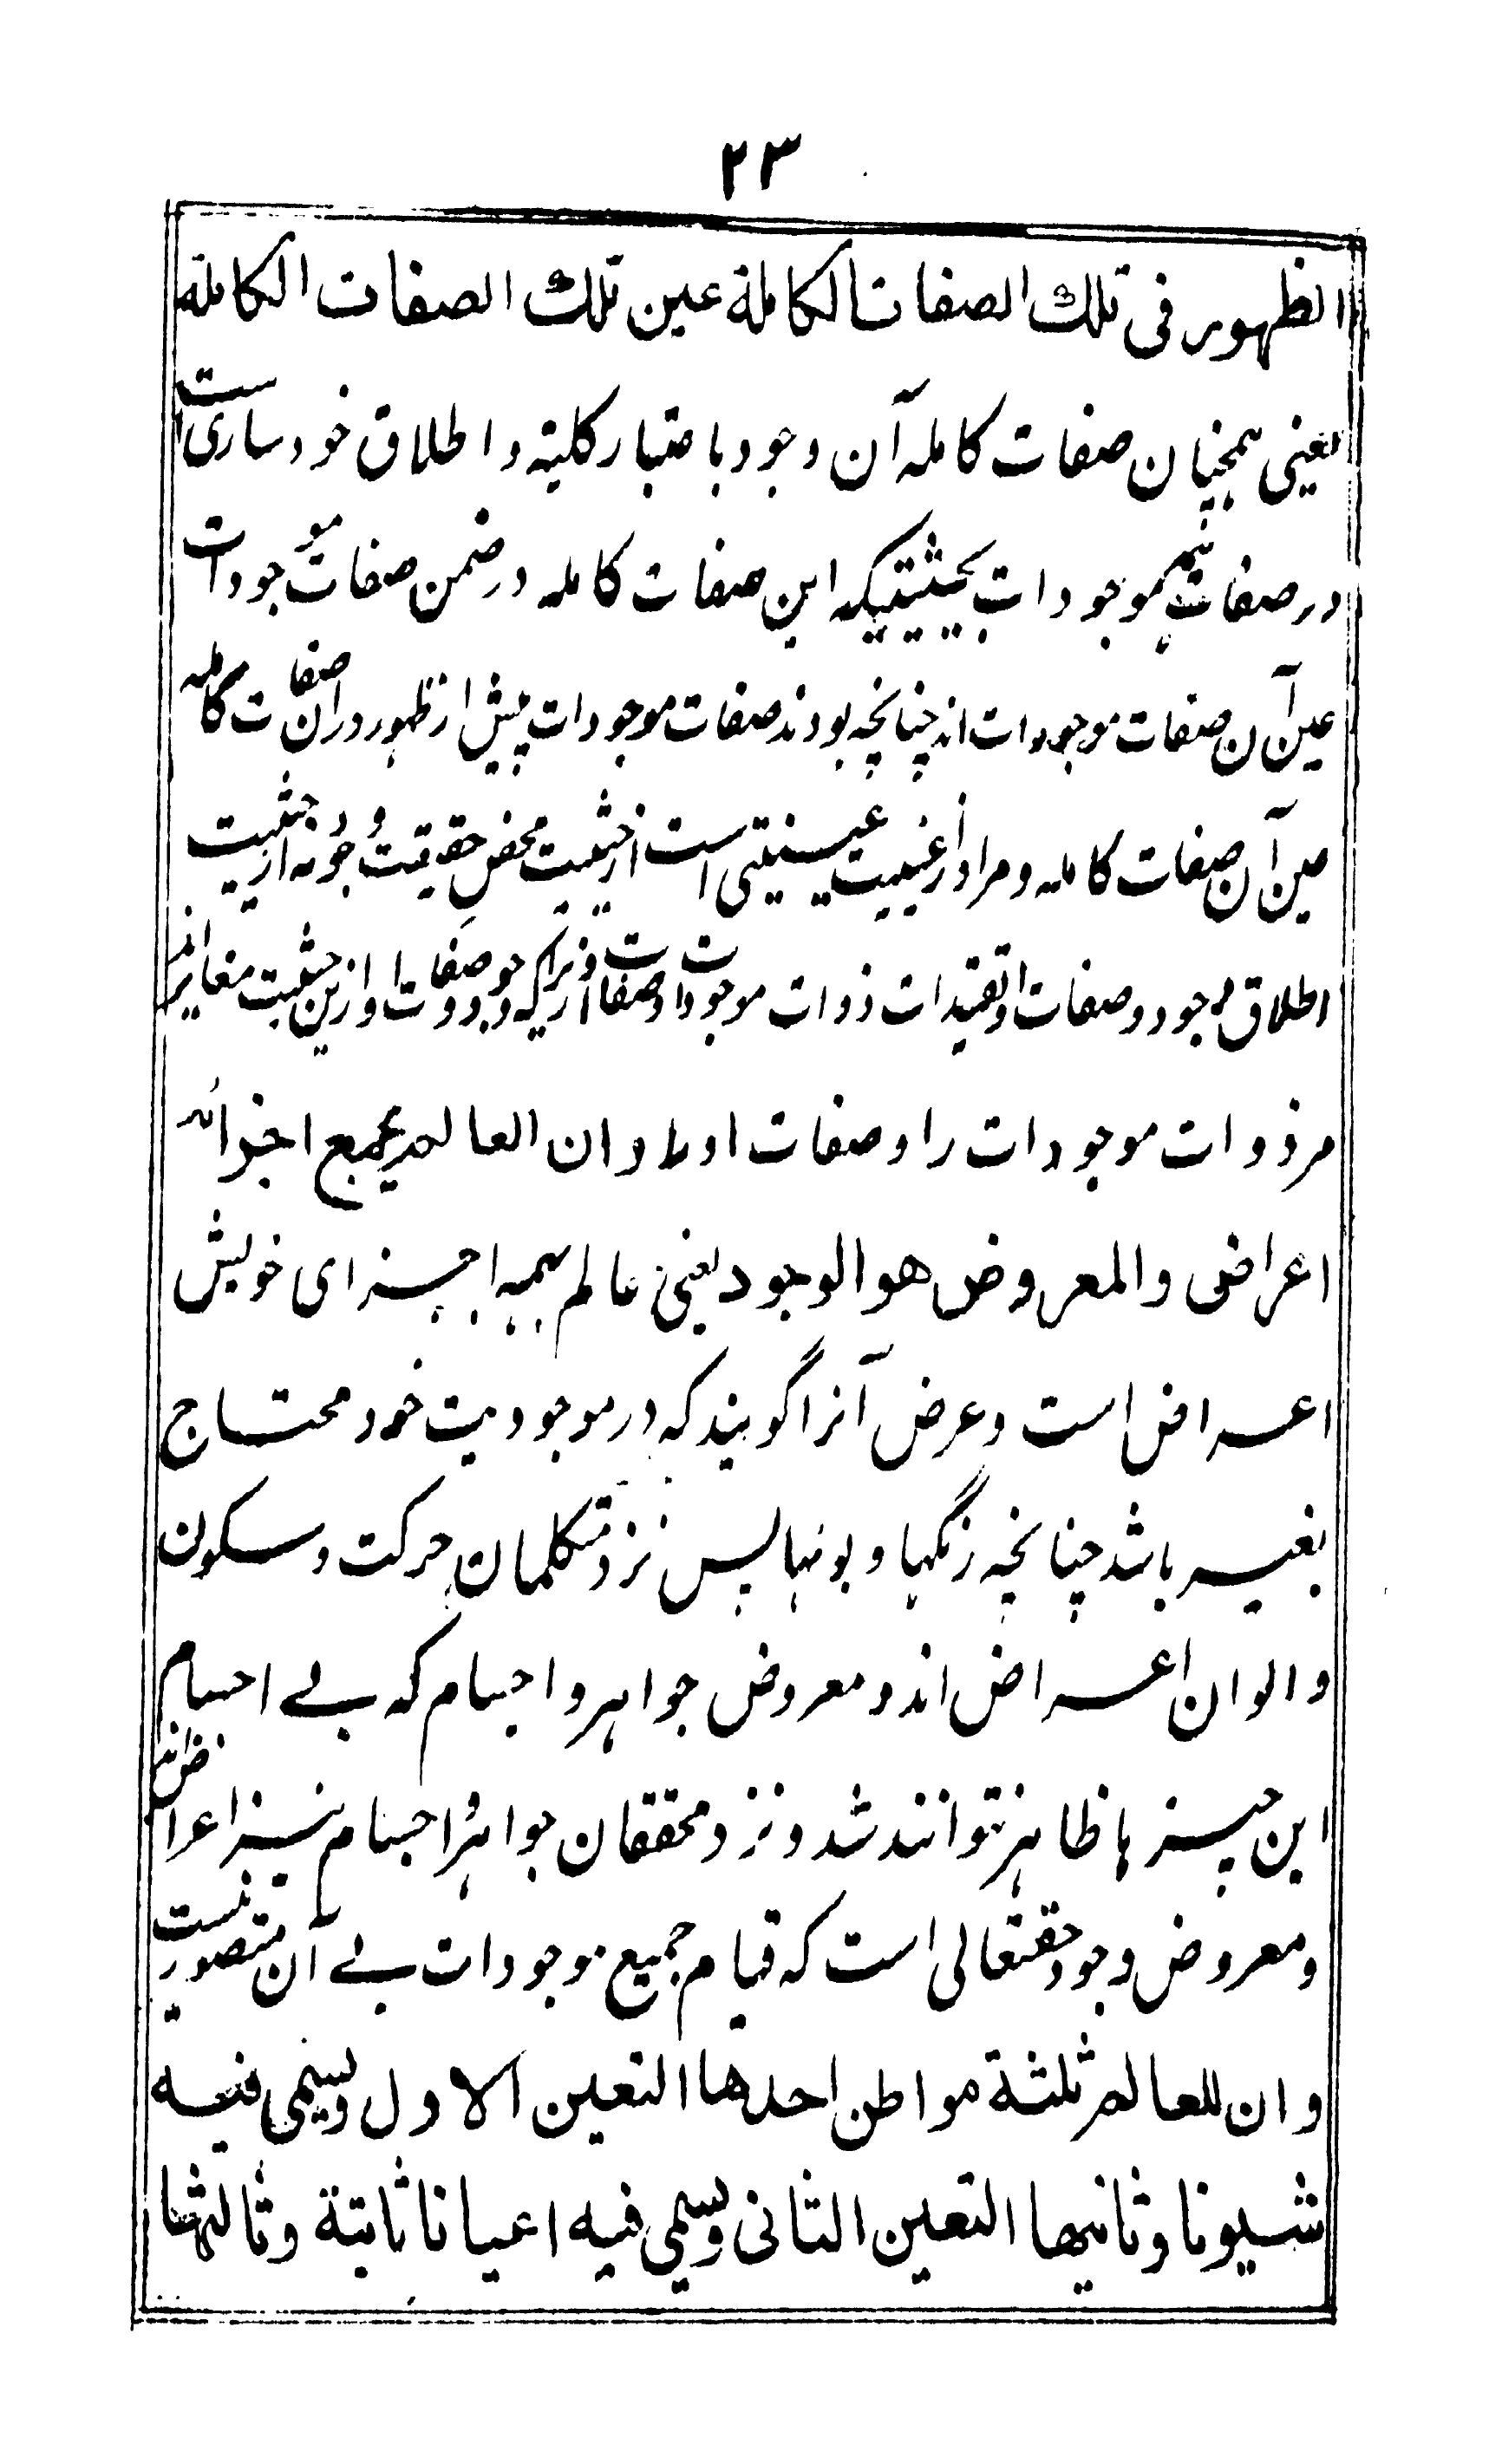 ۲۳
الظهور فی تلك الصفات الكاملة عین تلك الصفات الكاملة
یعنی همچنان صفات کامله آن وجود باعتبار کلیة و اطلاق خود ساری است
در صفات همه موجودات بحیثیتیکه این صفات کامله در ضمن صفات موجودات
عین آن صفات موجودات اند چنانچه بودند صفات موجودات پیش از ظهور در ان صفات کامله
عین آن صفات کامله و مراد از عینیت عینیتی است از حیثیت محض حقیقت وجود نه از حیثیت
اطلاق وجود و صفات او تقیدات ذوات موجودات و صفات زیراکه وجود و صفات او ازین حیثیت مغایراند
مر ذوات موجودات را و صفات اورا و ان العالم بجمیع اجزائه
اعراض والمعروض هو الوجود یعنی عالم بهمه اجزای خویش
اعراض است و عرض آنرا گویند که در موجودیت خود محتاج
بغیر باشد چنانچه رنگها و بونها پس نزد متکلمان حرکت و سکون
و الوان اعراض اند و معروض جواهر و اجسام که بے اجسام
این چیز ها ظاهر نتوانند شد و نزد محققان جواهر و اجسام نیز اعراض اند
و معروض وجود حقتعالی است که قیام جمیع موجودات بے آن متصور نیست
وان للعالم ثلثة مواطن احدها التعین الاول ویسمی فیه
شیونا وثانیها التعین الثانی ویسمی فیه اعیانا ثابتة وثالثها